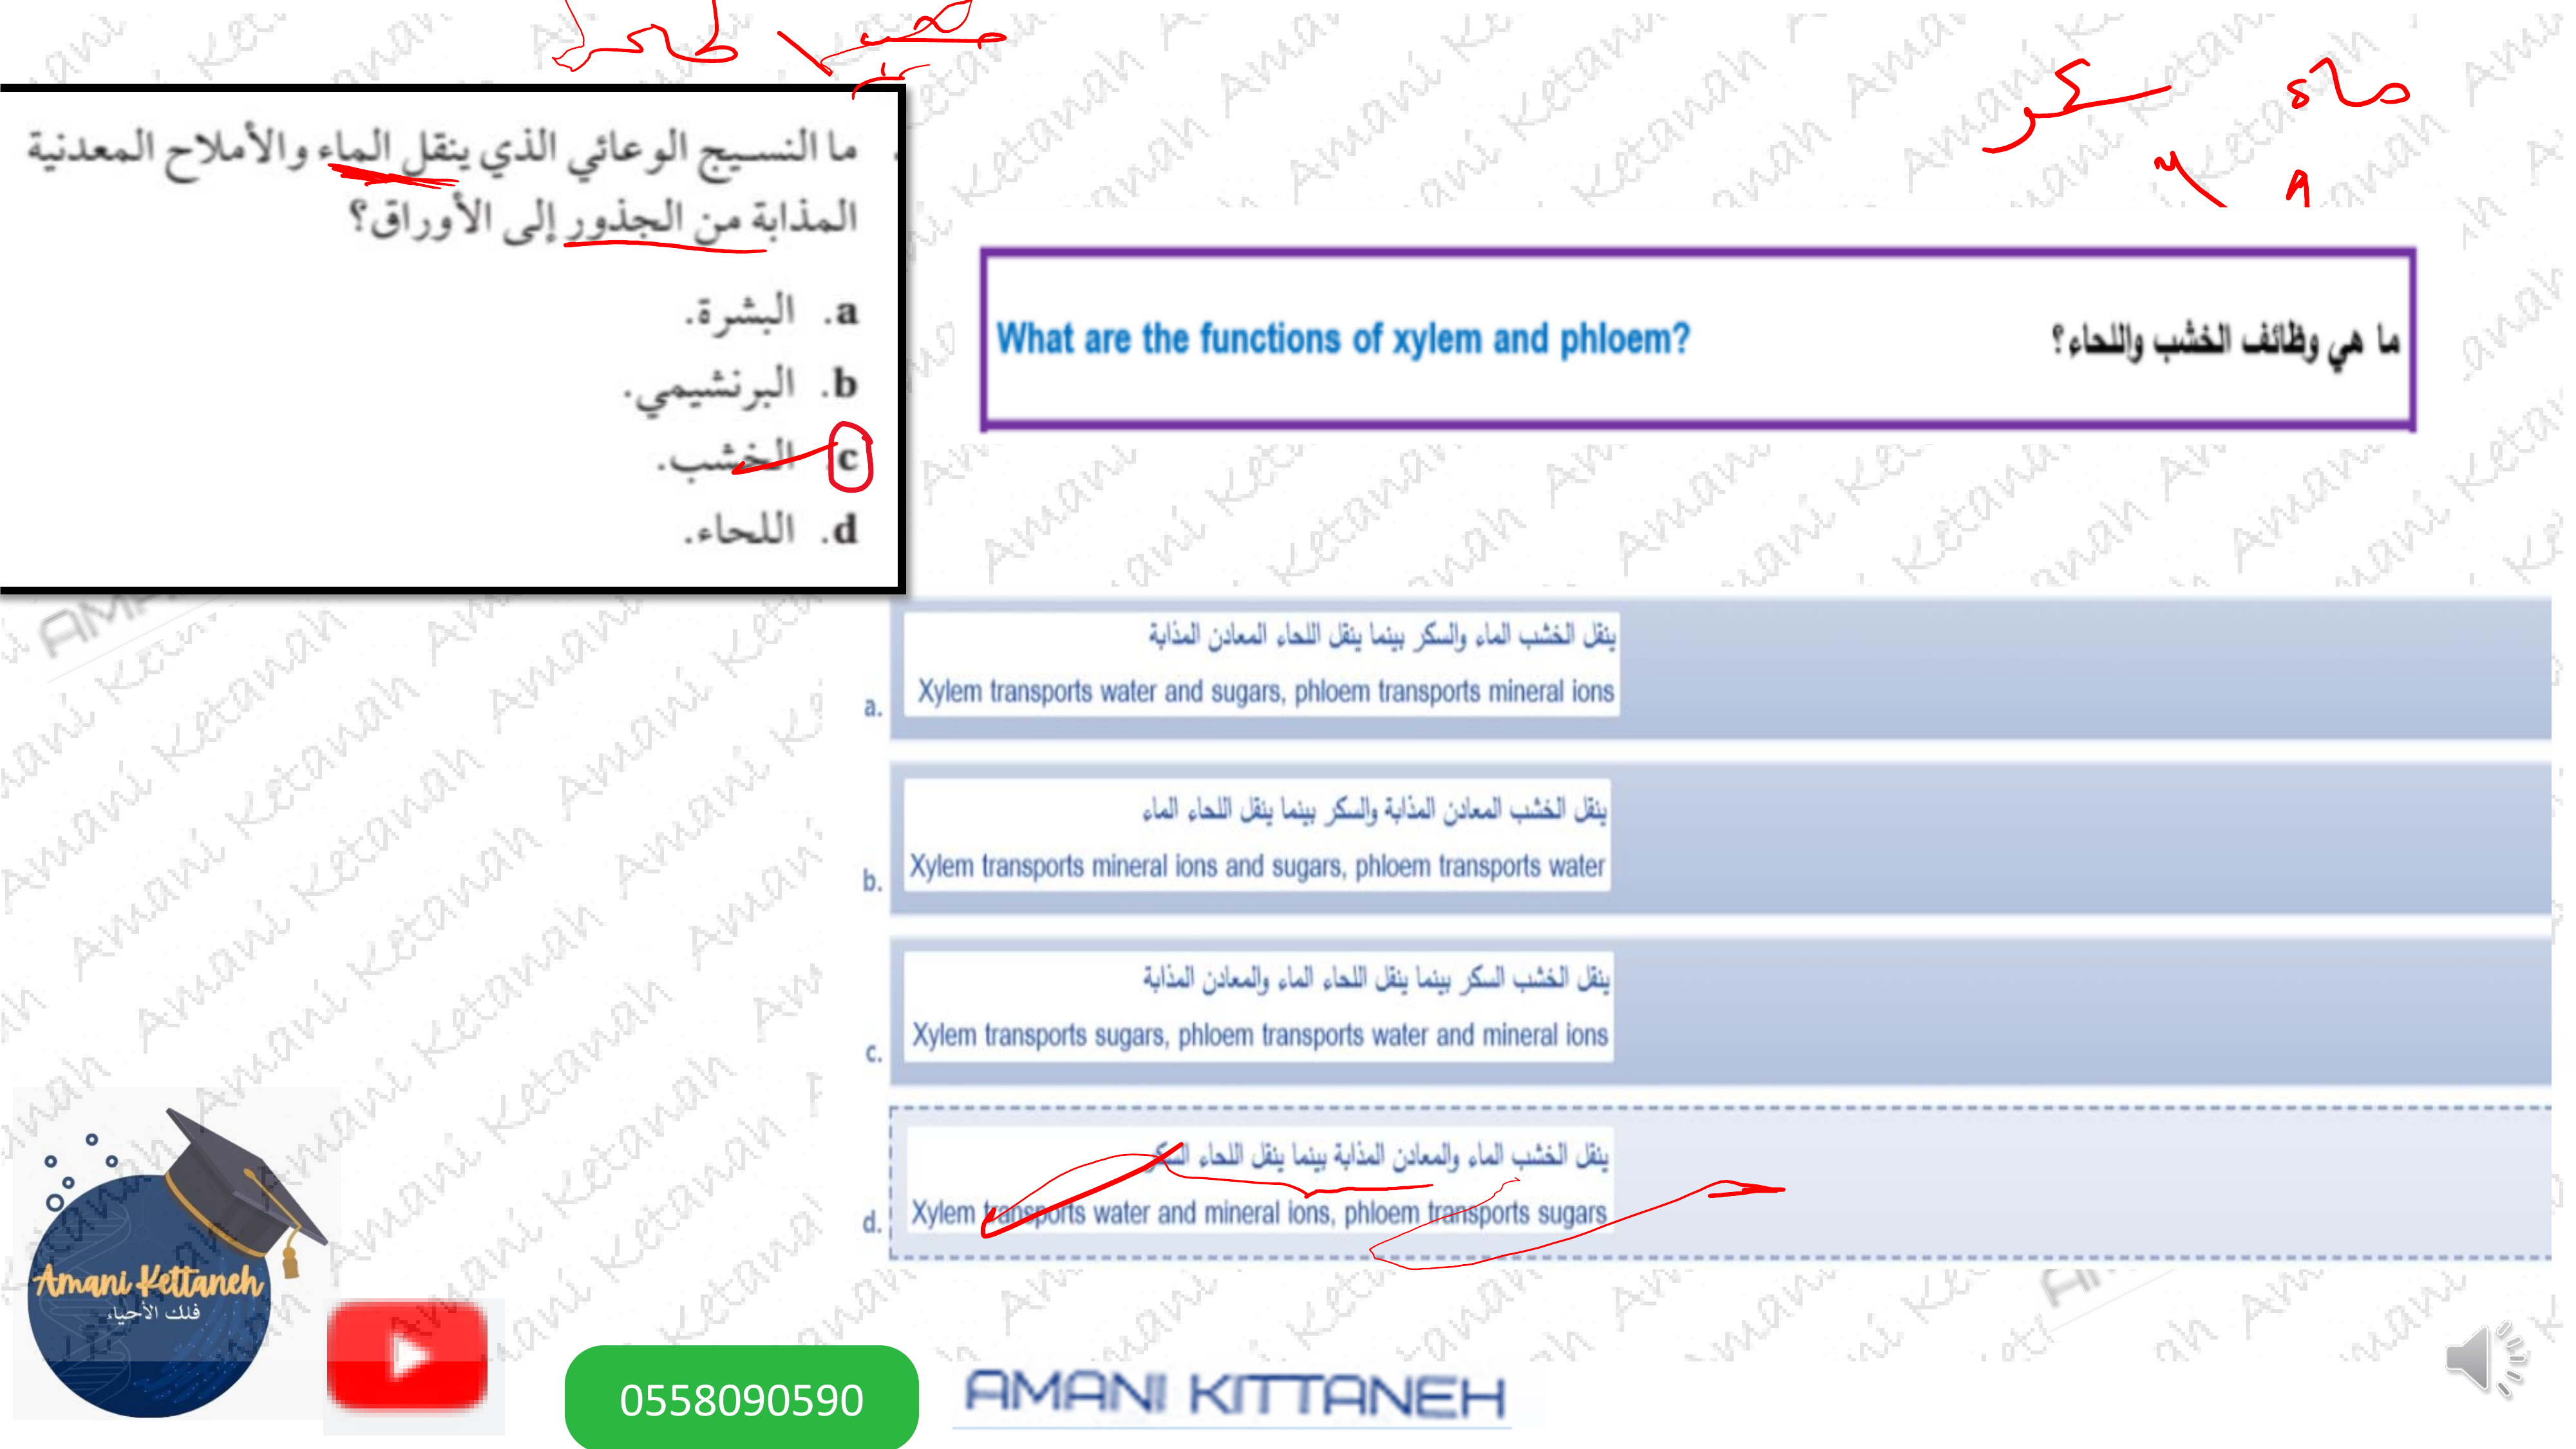 ماء سكر
ما النسيج الوعائي الذي ينقل الماء والأملاح المعدنية
المذابة من الجذور إلى الأوراق؟
a. البشرة.
b. البرنشيمي.
c. الخشب.
d. اللحاء.
What are the functions of xylem and phloem? ما هي وظائف الخشب واللحاء؟
ينقل الخشب الماء والسكر بينما ينقل اللحاء المعادن المذابة
a. Xylem transports water and sugars, phloem transports mineral ions
ينقل الخشب المعادن المذابة والسكر بينما ينقل اللحاء الماء
b. Xylem transports mineral ions and sugars, phloem transports water
ينقل الخشب السكر بينما ينقل اللحاء الماء والمعادن المذابة
c. Xylem transports sugars, phloem transports water and mineral ions
ينقل الخشب الماء والمعادن المذابة بينما ينقل اللحاء السكر
d. Xylem transports water and mineral ions, phloem transports sugars
Amani Kettaneh
فلك الأحياء
0558090590
AMANI KITTANEH